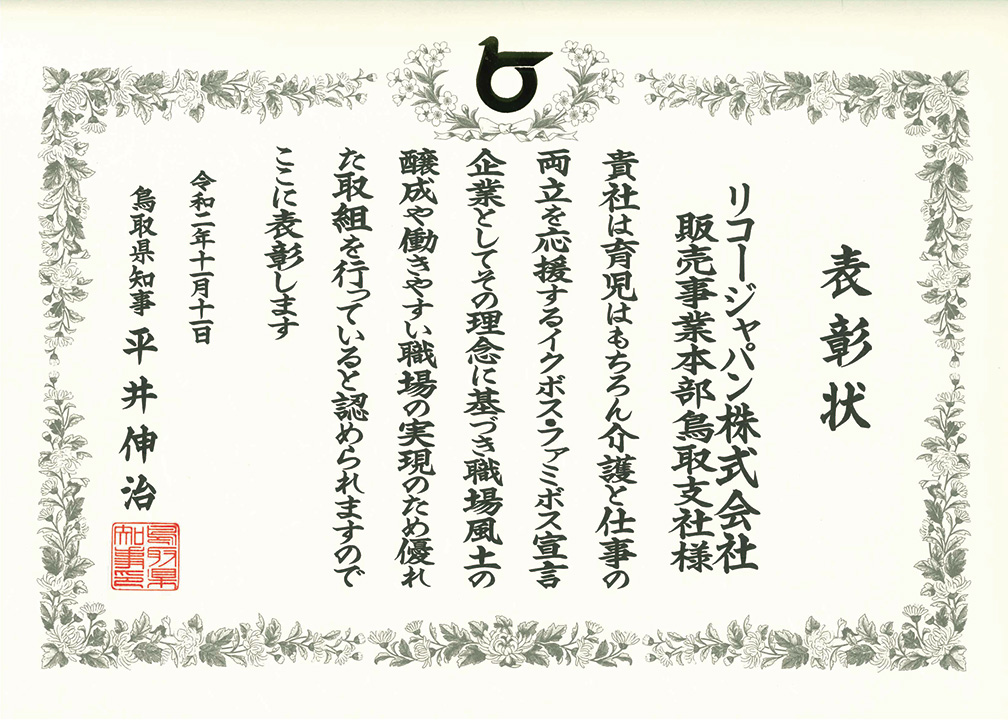 表彰状
リコージャパン株式会社
販売事業本部鳥取支社様
貴社は育児はもちろん介護と仕事の
両立を応援するイクボス・ファミボス宣言
企業としてその理念に基づき職場風土の
醸成や働きやすい職場の実現のため優れ
た取組を行っていると認められますので
ここに表彰します
令和二年十一月十一日
鳥取県知事 平井伸治
鳥取県
知事印